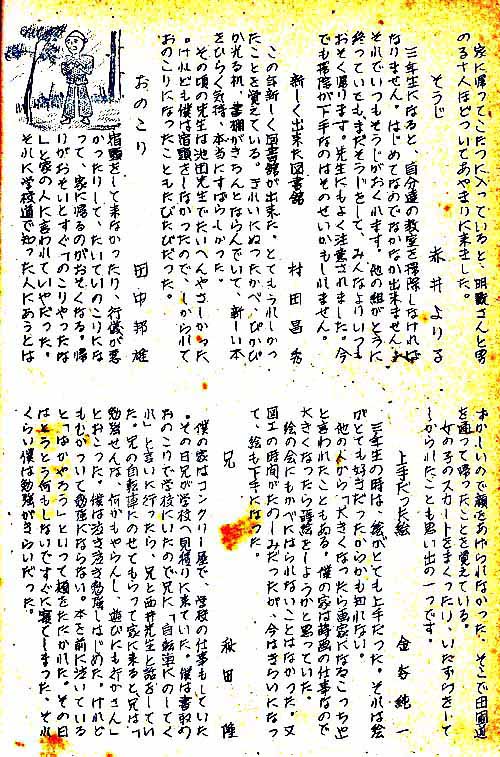 家に帰ってこたつに入っていると、明敏さんと男
の子十人ほどついてあやまりに来ました。
そうじ　赤井よりる
三年生になると、自分達の教室を掃除しなければ
なりません。はじめてなのでなかなか出来ません。
それでいつもそうじがおくれます。他の組がとうに
終っていてもまだそうじをして、みんなよりいつも
おそく帰ります。先生にもよく注意されました。今
でも掃除が下手なのはそのせいかもしれません。
新しく出来た図書館　村田昌秀
この年新しく図書館が出来た。とてもうれしかっ
たことを覚えている。きれいにぬったかべ、ぴかぴ
か光る机、書棚がきちんとならんでいて、新しい本
をひらく気持、本当にすばらしかった。
その頃の先生は池田先生でたいへんやさしかった
けれども僕は宿題をしなかったので、しかられて
おのこりになったこともたびたびだった。
おのこり　田中邦雄
宿題をして来なかったり、行儀が悪
かったりして、たいていのこりにな
って、家に帰るのがおそくなる。帰
りがおそいとすぐ「のこりやったな
」と家の人に言われていやだった。
それに学校道で知った人にあうとは
ずかしいので顔をあげられなかった。そこで田圃道
を通って帰ったことを覚えている。
女の子のスカートをまくったり、いたずらをして
しかられたことも思い出の一つです。
上手だった絵　金谷純一
三年生の時は、絵がとても上手だった。それは絵
がとても好きだったからかも知れない。
他の人から「大きくなったら画家になるこっちゃ」
と言われたこともある。僕の家は蒔画の仕事なので
大きくなったら蒔絵をしようかと思っていた。
絵の会にもかべにはられないことはなかった。又
図工の時間がたのしみだったが、今はきらいになっ
て、絵も下手になった。
兄　秋田陸
僕の家はコンクリー屋で、学校の仕事もしていた
。その日兄が学校へ見積りに来ていた。僕は書取の
おのこりで学校にいたので兄に「自転車にのしてく
れ」と言いに行ったら、兄と西井先生と話をしてい
た。兄の自転車にのせてもらって家に来ると兄は「
勉強せんな、何かもやらんし、遊びにも行かさん」
とおこった。僕は泣き泣き勉強しはじめた。けれど
もむかついて勉強にならない。本を前に泣いている
と「ばかやろう」といって頬をたたかれた。その日
はとうとう何もしないですぐに寝てしまった。それ
くらい僕は勉強がきらいだった。